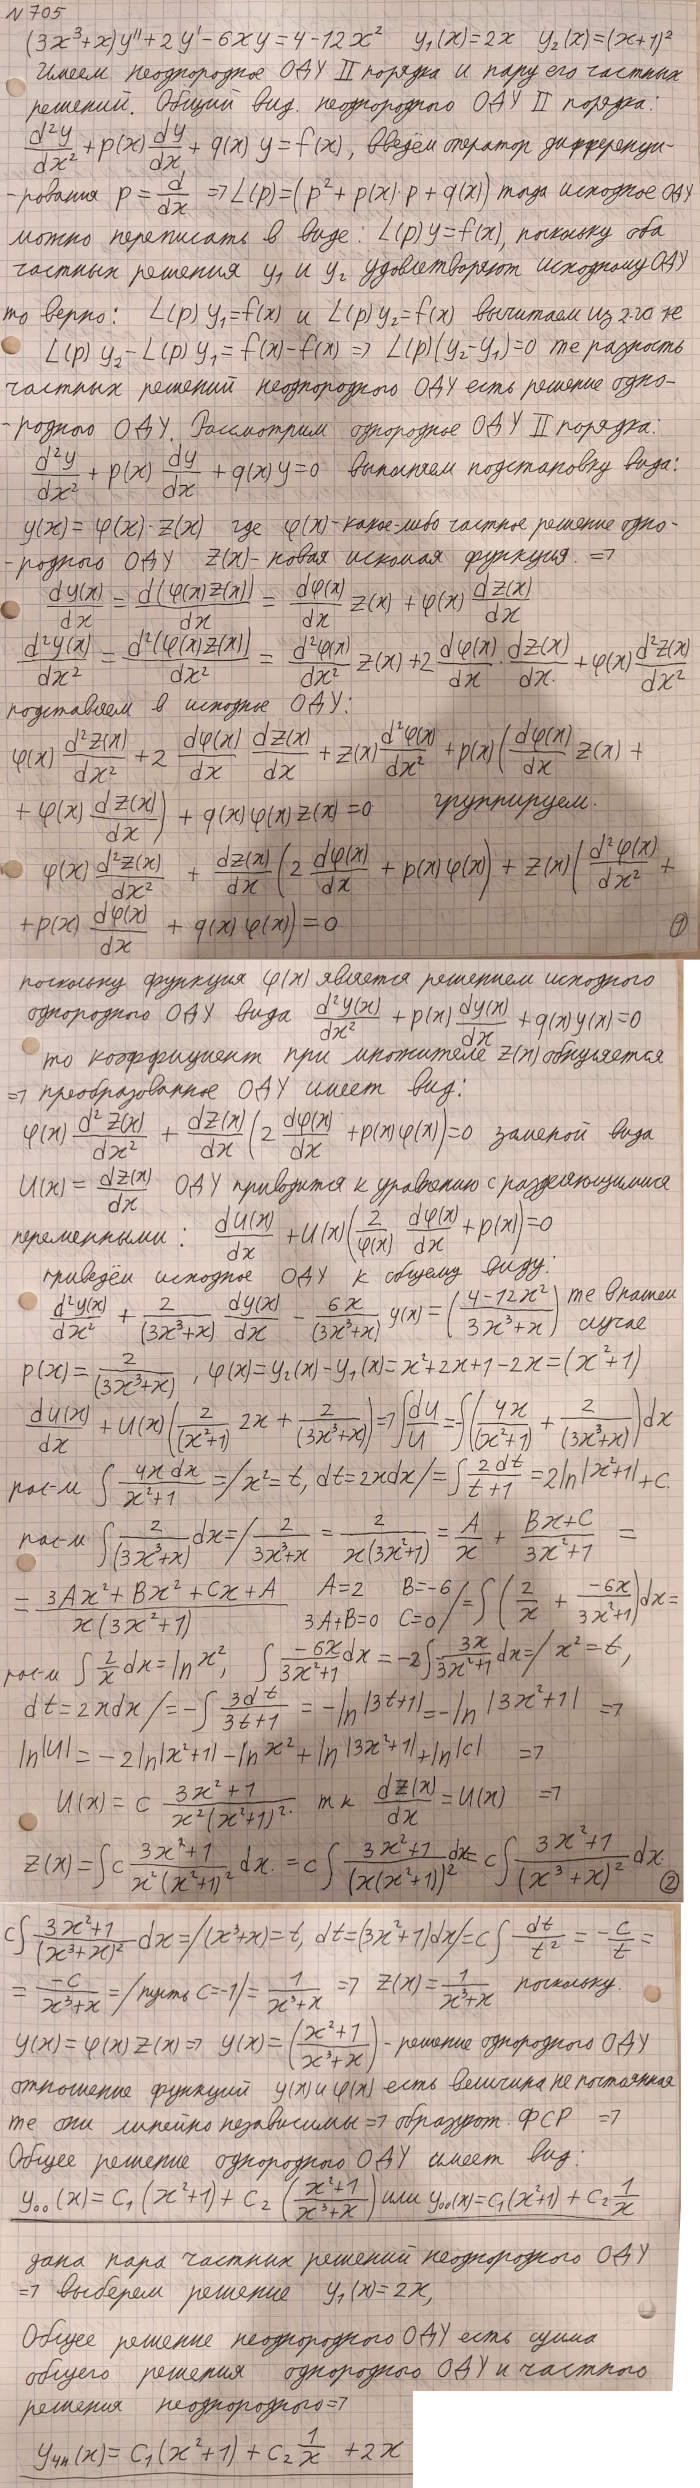 N 705
(3x³+x)y''+2y'-6xy=4-12x² y₁(x)=2x y₂(x)=(x+1)²
Имеем неоднородное ОДУ II порядка и пару его частных
решений. Общий вид неоднородного ОДУ II порядка:
d²y/dx² + p(x) dy/dx + q(x) y = f(x), введём оператор дифференци-
-рования p = d/dx => L(p)=(p²+p(x)·p+q(x)) тогда исходное ОДУ
можно переписать в виде: L(p)y=f(x), поскольку оба
частных решения y₁ и y₂ удовлетворяют исходному ОДУ
то верно: L(p)y₁=f(x) и L(p)y₂=f(x) вычитаем из 2-го 1-е
L(p)y₂-L(p)y₁=f(x)-f(x) => L(p)(y₂-y₁)=0 те разность
частных решений неоднородного ОДУ есть решение одно-
-родного ОДУ. Рассмотрим однородное ОДУ II порядка:
d²y/dx² + p(x) dy/dx + q(x)y=0 выполняем подстановку вида:
y(x)=φ(x)·z(x) где φ(x)-какое-либо частное решение одно-
-родного ОДУ z(x)-новая искомая функция. =>
dy(x)/dx = d(φ(x)z(x))/dx = dφ(x)/dx z(x) + φ(x) dz(x)/dx
d²y(x)/dx² = d²(φ(x)z(x))/dx² = d²φ(x)/dx² z(x) + 2 dφ(x)/dx · dz(x)/dx + φ(x) d²z(x)/dx²
подставляем в исходное ОДУ:
φ(x) d²z(x)/dx² + 2 dφ(x)/dx dz(x)/dx + z(x) d²φ(x)/dx² + p(x)(dφ(x)/dx z(x) +
+ φ(x) dz(x)/dx) + q(x)φ(x)z(x)=0 группируем.
φ(x) d²z(x)/dx² + dz(x)/dx (2 dφ(x)/dx + p(x)φ(x)) + z(x)(d²φ(x)/dx² +
+p(x) dφ(x)/dx + q(x)φ(x))=0
①
поскольку функция φ(x) является решением исходного
однородного ОДУ вида d²y(x)/dx² + p(x) dy(x)/dx + q(x)y(x)=0
то коэффициент при множителе z(x) обнуляется
=> преобразованное ОДУ имеет вид:
φ(x) d²z(x)/dx² + dz(x)/dx (2 dφ(x)/dx + p(x)φ(x))=0 заменой вида
U(x) = dz(x)/dx ОДУ приводится к уравнению с разделяющимися
переменными: dU(x)/dx + U(x)(2/φ(x) dφ(x)/dx + p(x))=0
приведём исходное ОДУ к общему виду:
d²y(x)/dx² + 2/(3x³+x) dy(x)/dx - 6x/(3x³+x) y(x) = ((4-12x²)/(3x³+x)) те в нашем
случае
p(x) = 2/(3x³+x), φ(x)=y₂(x)-y₁(x)=x²+2x+1-2x=(x²+1)
dU(x)/dx + U(x)(2/(x²+1) 2x + 2/(3x³+x))=0 => ∫dU/U = -∫(4x/(x²+1) + 2/(3x³+x))dx
рас-м ∫ 4x dx/(x²+1) = /x²=t, dt=2xdx/ = ∫ 2dt/(t+1) = 2ln|x²+1|+c.
рас-м ∫ 2/(3x³+x) dx = / 2/(3x³+x) = 2/(x(3x²+1)) = A/x + (Bx+C)/(3x²+1) =
= (3Ax²+Bx²+Cx+A)/(x(3x²+1)) A=2 B=-6 3A+B=0 C=0 / = ∫(2/x + -6x/(3x²+1))dx=
рас-м ∫ 2/x dx = ln x², ∫ -6x/(3x²+1) dx = -2∫ 3x/(3x²+1) dx = / x²=t,
dt=2xdx/ = -∫ 3dt/(3t+1) = -ln|3t+1| = -ln|3x²+1| =>
ln|U| = -2ln|x²+1| - ln x² + ln|3x²+1| + ln|c| =>
U(x) = c (3x²+1)/(x²(x²+1)²) тк dz(x)/dx = U(x) =>
z(x) = ∫c (3x²+1)/(x²(x²+1)²) dx = c∫ (3x²+1)/(x(x²+1))² dx = c∫ (3x²+1)/(x³+x)² dx
②
c∫ (3x²+1)/(x³+x)² dx = /(x³+x)=t, dt=(3x²+1)dx/ = c∫ dt/t² = -c/t =
= -c/(x³+x) = /пусть c=-1/ = 1/(x³+x) => z(x) = 1/(x³+x) поскольку
y(x)=φ(x)z(x) => y(x) = ((x²+1)/(x³+x)) - решение однородного ОДУ
отношение функций y(x) и φ(x) есть величина не постоянная
те они линейно независимы => образуют ФСР =>
Общее решение однородного ОДУ имеет вид:
y₀₀(x) = C₁(x²+1) + C₂((x²+1)/(x³+x)) или y₀₀(x) = C₁(x²+1) + C₂ 1/x
дана пара частных решений неоднородного ОДУ
=> выберем решение y₁(x)=2x,
Общее решение неоднородного ОДУ есть сумма
общего решения однородного ОДУ и частного
решения неоднородного =>
yчн(x) = C₁(x²+1) + C₂ 1/x + 2x